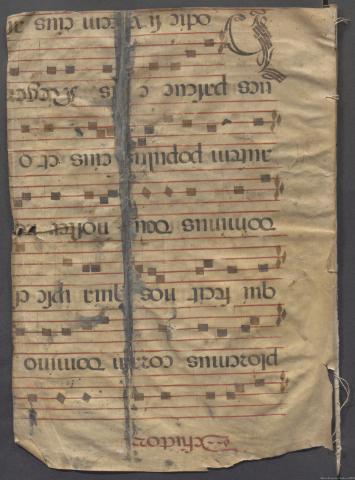 ploremus coram domino
qui fecit nos quia ipse e
dominus deus noster
autem populus eius et o
ues pascue eius Rege
odie si vocem eius